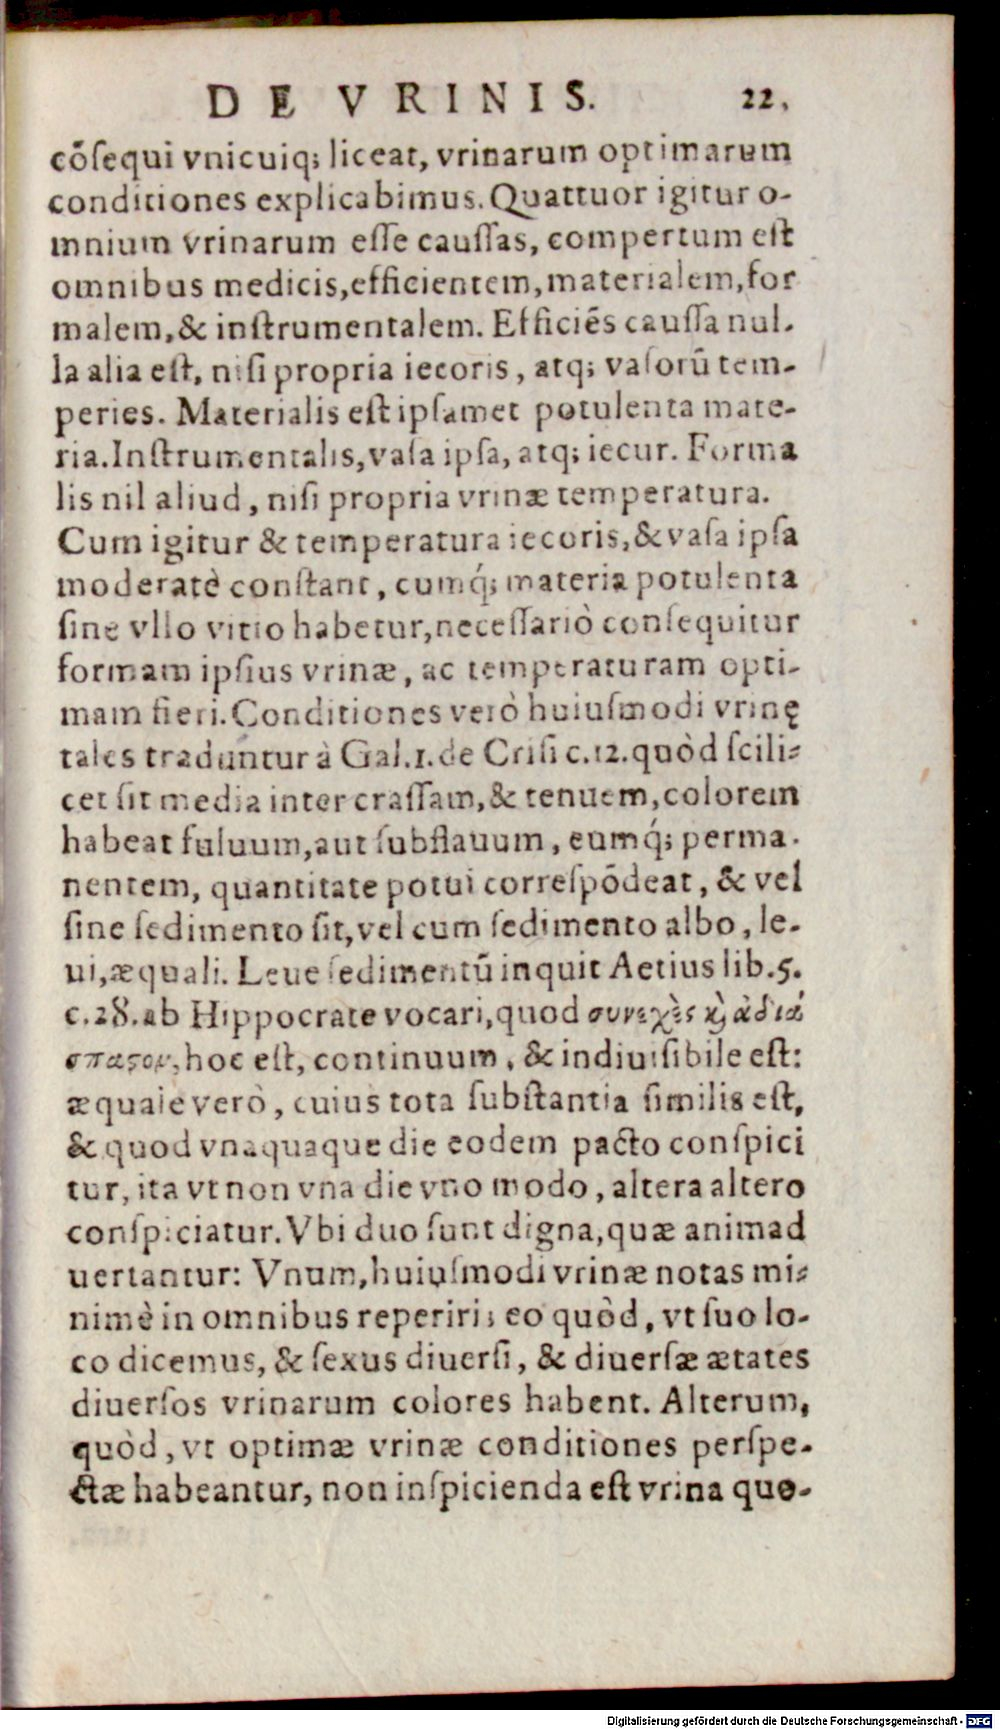 DE VRINIS. 22.
cōſequi vnicuiq; liceat, vrinarum optimarum
conditiones explicabimus. Quattuor igitur o-
mnium vrinarum eſſe cauſſas, compertum eſt
omnibus medicis, efficientem, materialem, for
malem, & inſtrumentalem. Efficiēs cauſſa nul-
la alia eſt, niſi propria iecoris, atq; vaſorū tem-
peries. Materialis eſt ipſamet potulenta mate-
ria. Inſtrumentalis, vaſa ipſa, atq; iecur. Forma
lis nil aliud, niſi propria vrinæ temperatura.
Cum igitur & temperatura iecoris, & vaſa ipſa
moderatè conſtant, cumq́; materia potulenta
ſine vllo vitio habetur, neceſſariò conſequitur
formam ipſius vrinæ, ac temperaturam opti-
mam fieri. Conditiones verò huiuſmodi vrinę
tales traduntur à Gal. 1. de Criſi c. 12. quòd ſcili-
cet ſit media inter craſſam, & tenuem, colorem
habeat fuluum, aut ſubflauum, eumq́; perma-
nentem, quantitate potui correſpōdeat, & vel
ſine ſedimento ſit, vel cum ſedimento albo, le-
ui, æquali. Leue ſedimentū inquit Aetius lib. 5.
c. 28. ab Hippocrate vocari, quod συνεχὲς ϗ̀ ἀδιά
σπαϛον, hoc eſt, continuum, & indiuiſibile eſt:
æquale verò, cuius tota ſubſtantia ſimilis eſt,
& quod vnaquaque die eodem pacto conſpici
tur, ita vt non vna die vno modo, altera altero
conſpiciatur. Vbi duo ſunt digna, quæ animad
uertantur: Vnum, huiuſmodi vrinæ notas mi-
nimè in omnibus reperiri; eo quòd, vt ſuo lo-
co dicemus, & ſexus diuerſi, & diuerſæ ætates
diuerſos vrinarum colores habent. Alterum,
quòd, vt optimæ vrinæ conditiones perſpe-
ctæ habeantur, non inſpicienda eſt vrina quo-
Digitalisierung gefördert durch die Deutsche Forschungsgemeinschaft - DFG